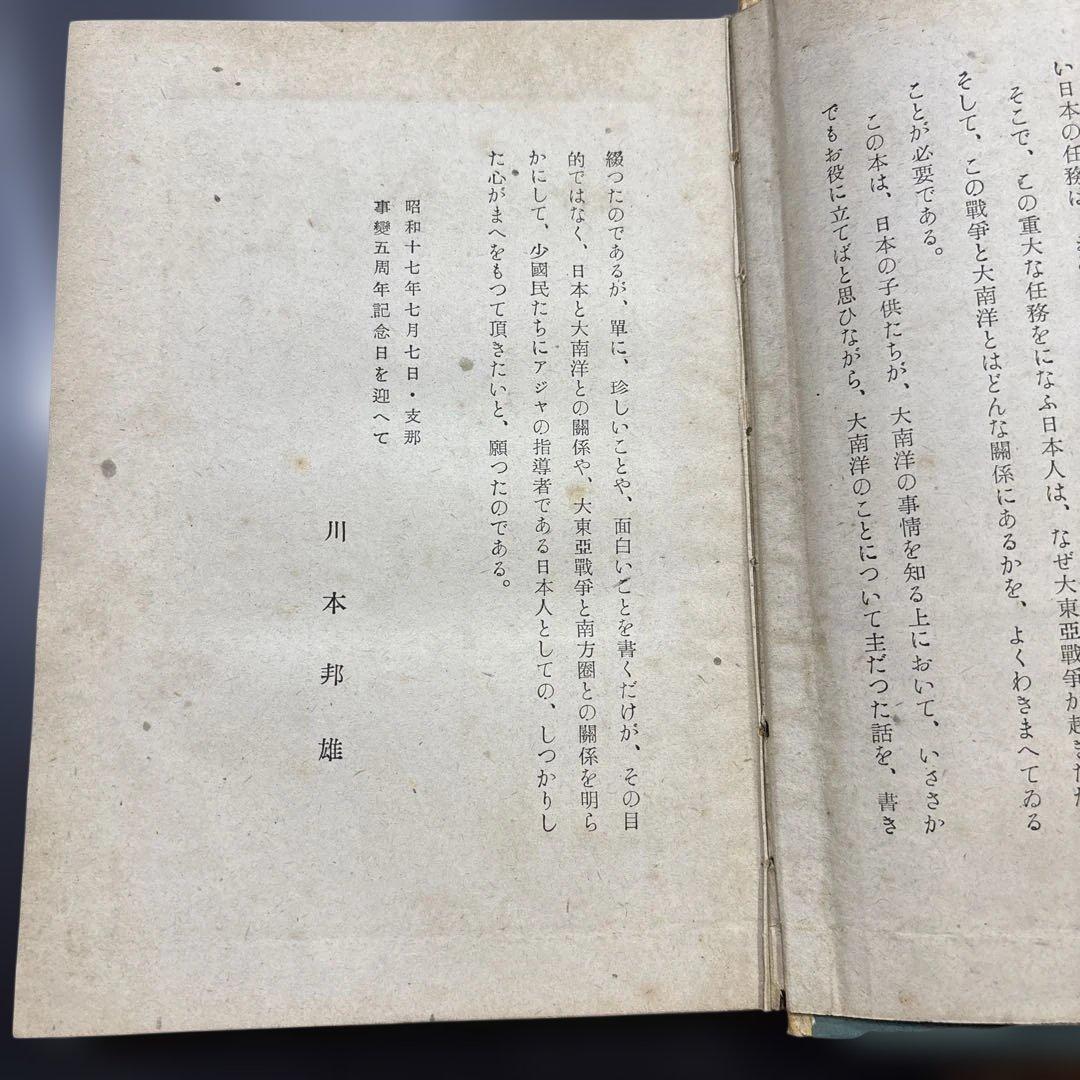 い日本の任務は
そこで、この重大な任務をになふ日本人は、なぜ大東亞戰爭が起きたか
そして、この戰爭と大南洋とはどんな關係にあるかを、よくわきまへてゐる
ことが必要である。
この本は、日本の子供たちが、大南洋の事情を知る上において、いささか
でもお役に立てばと思ひながら、大南洋のことについて主だつた話を、書き
綴つたのであるが、單に、珍しいことや、面白いことを書くだけが、その目
的ではなく、日本と大南洋との關係や、大東亞戰爭と南方圈との關係を明ら
かにして、少國民たちにアジヤの指導者である日本人としての、しつかりし
た心がまへをもつて頂きたいと、願つたのである。
昭和十七年七月七日・支那
事變五周年記念日を迎へて
川本邦雄